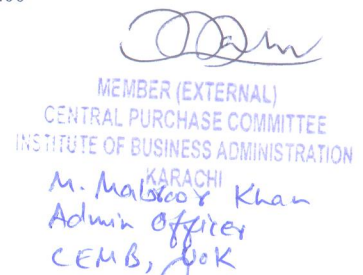 MEMBER (EXTERNAL)
CENTRAL PURCHASE COMMITTEE
INSTITUTE OF BUSINESS ADMINISTRATION
KARACHI
M. Khan
Admin Officer
CEMB, UoK